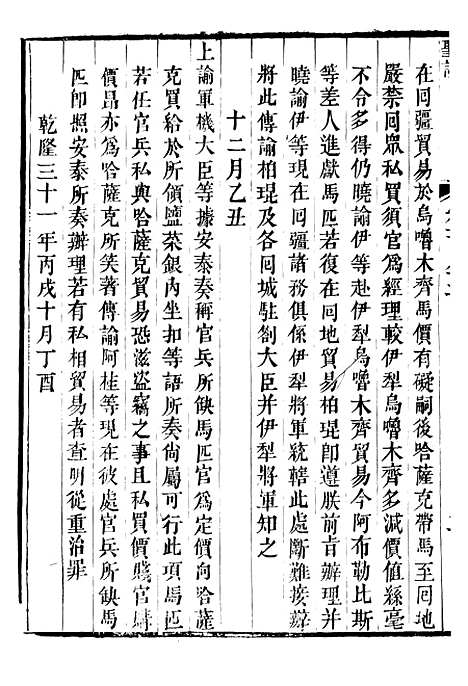 聖訓
在回疆貿易於烏嚕木齊馬價有礙嗣後哈薩克帶馬至回地
嚴禁回眾私買須官為經理較伊犁烏嚕木齊多減價值絲毫
不令多得仍曉諭伊等赴伊犁烏嚕木齊貿易今阿布勒比斯
等差人進獻馬匹若復在回地貿易柏琨即遵朕前旨辦理并
曉諭伊等現在回疆諸務俱係伊犁將軍統轄此處斷難接辦
將此傳諭柏琨及各回城駐劄大臣并伊犁將軍知之
十二月乙丑
上諭軍機大臣等據安泰奏稱官兵所缺馬匹官為定價向哈薩
克買給於所領鹽菜銀內坐扣等語所奏尚屬可行此項馬匹
若任官兵私與哈薩克貿易恐滋盜竊之事且私買價賤官轉
價昂亦為哈薩克所笑著傳諭阿桂等現在彼處官兵所缺馬
匹即照安泰所奏辦理若有私相貿易者查明從重治罪
乾隆三十一年丙戌十月丁酉